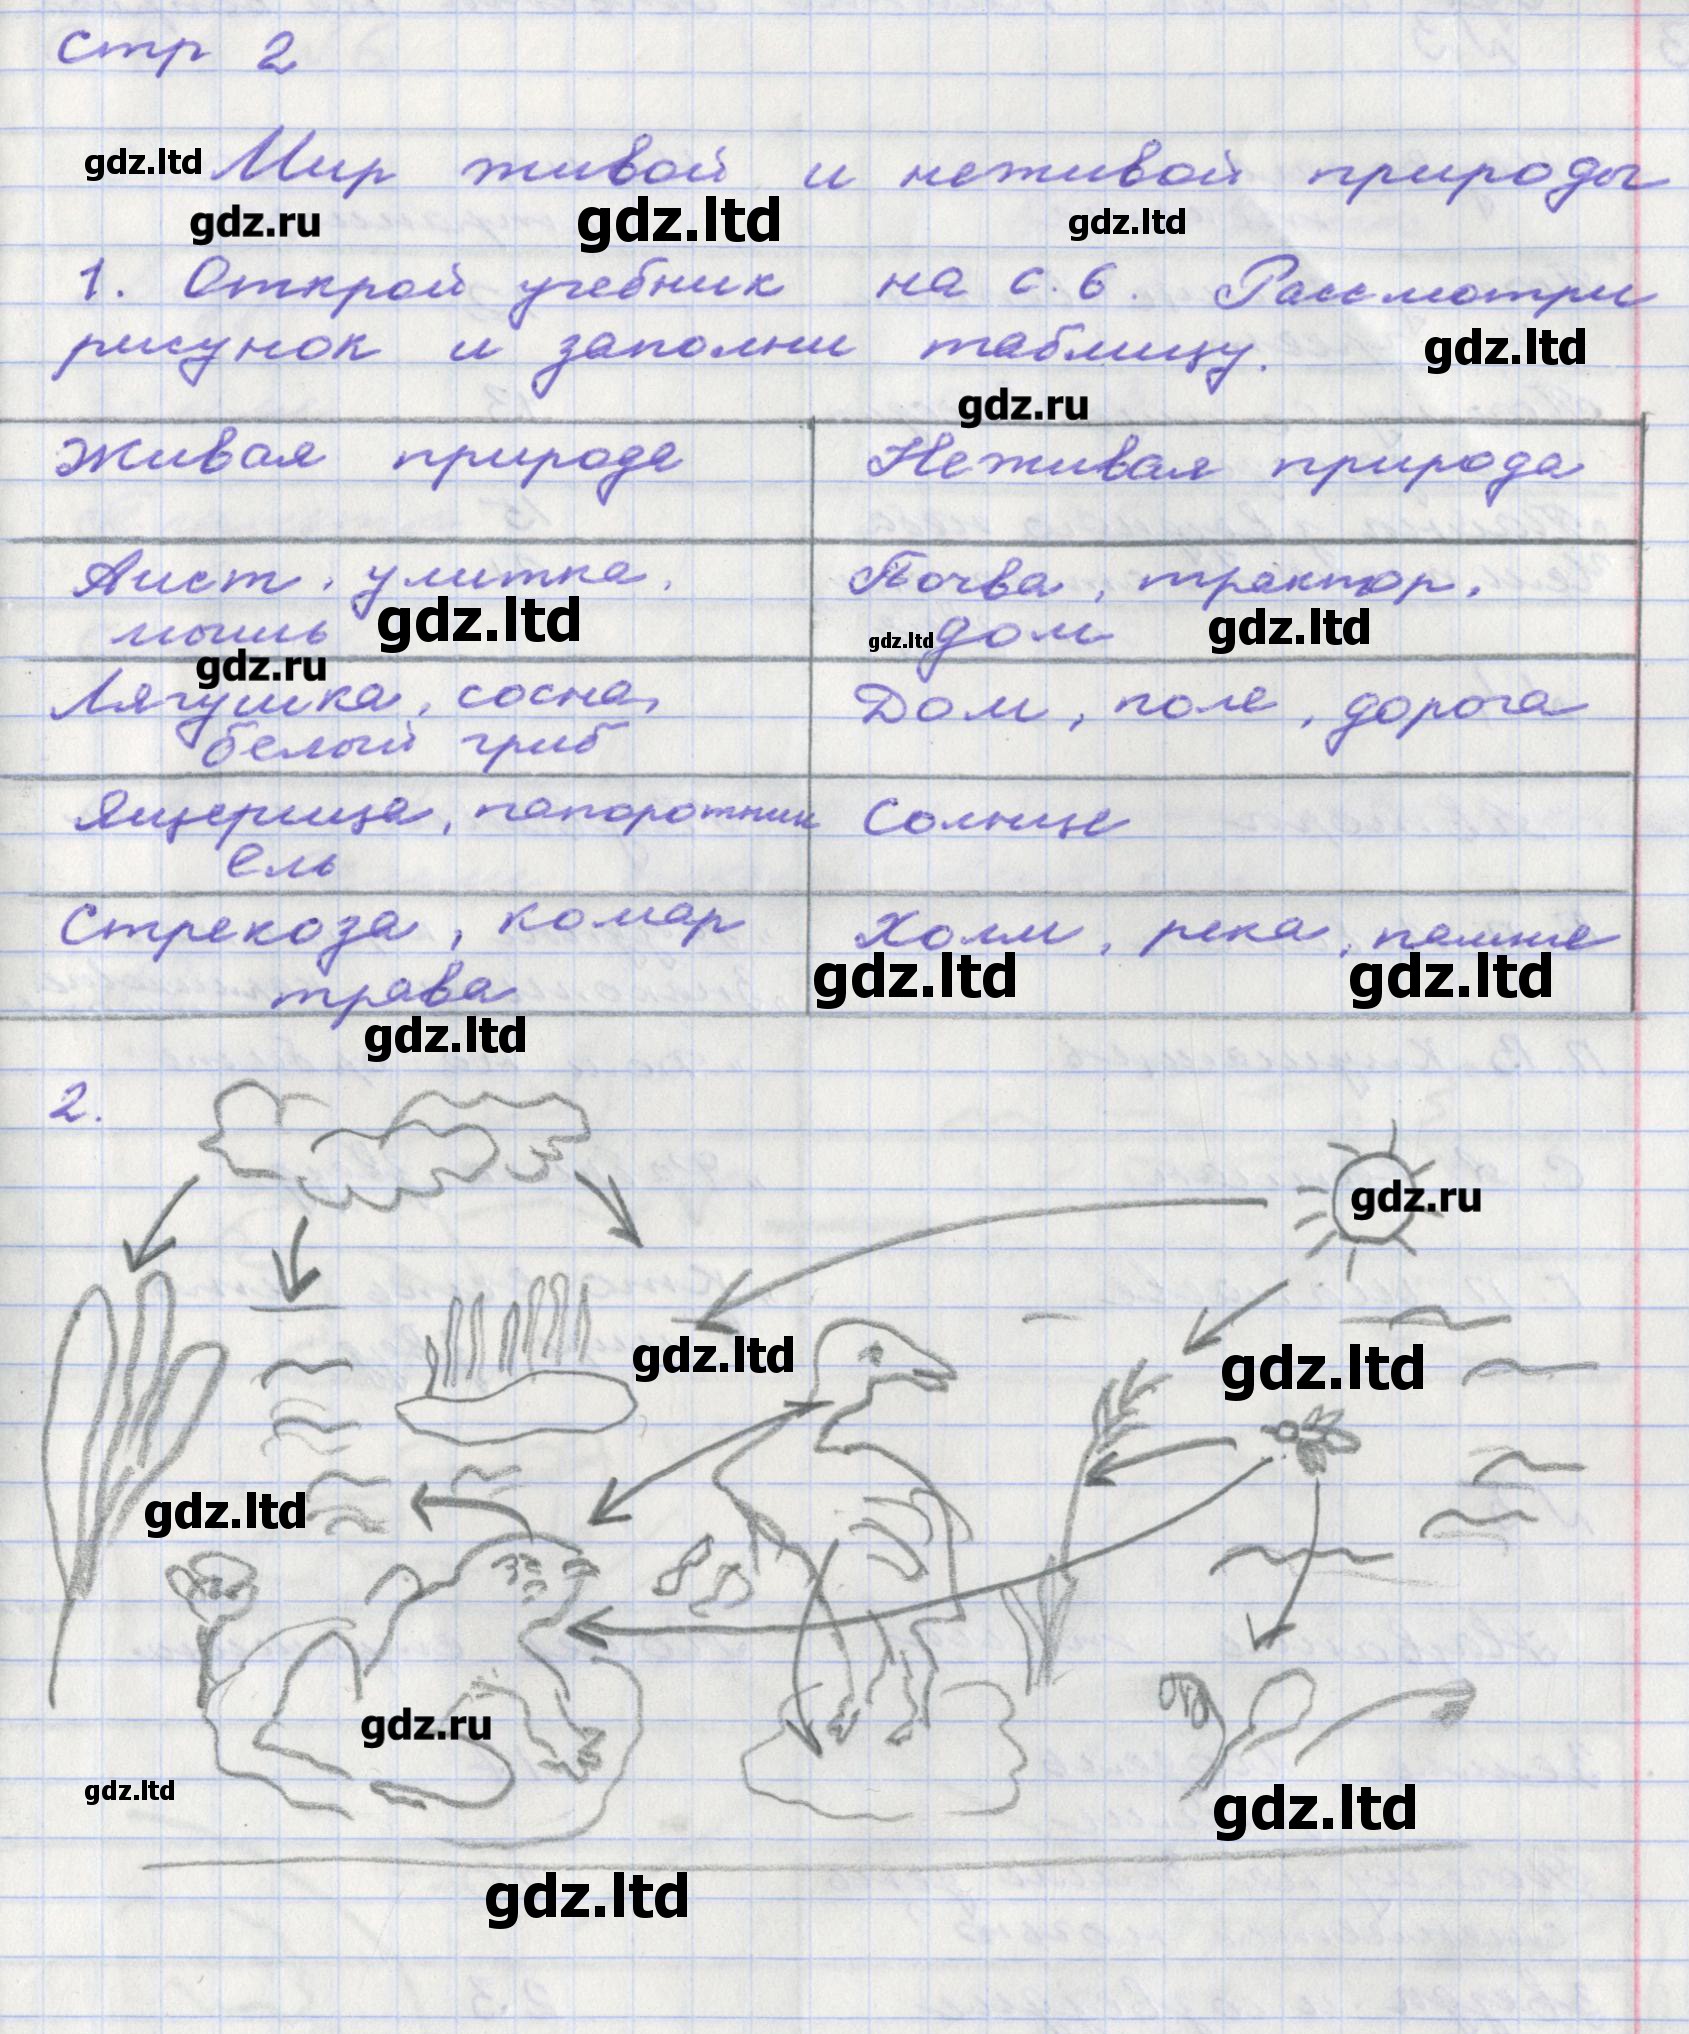 стр 2
gdz.ltd Мир живой и неживой природы
gdz.ru gdz.ltd gdz.ltd
1. Открой учебник на с. 6. Рассмотри
рисунок и заполни таблицу. gdz.ltd
gdz.ru
Живая природа Неживая природа
Аист, улитка, Почва, трактор,
мышь gdz.ltd gdz.ltd дом gdz.ltd
gdz.ru
Лягушка, сосна, Дом, поле, дорога
белый гриб
Ящерица, папоротник Солнце
ель
Стрекоза, комар Холм, река,
трава gdz.ltd gdz.ltd
gdz.ltd
2.
gdz.ru
gdz.ltd gdz.ltd
gdz.ltd
gdz.ru
gdz.ltd gdz.ltd
gdz.ltd